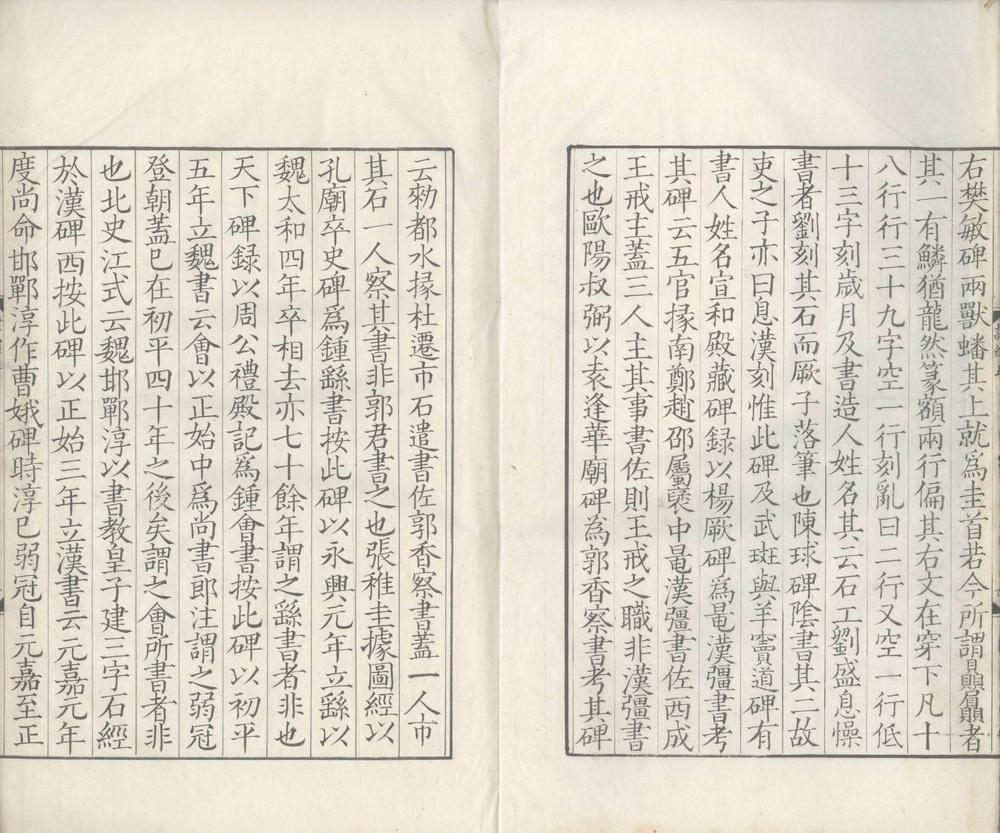 右樊敏碑兩獸蟠其上就爲圭首若今所謂贔屭者
其一有鱗猶龍然篆額兩行偏其右文在穿下凡十
八行行三十九字空一行刻亂曰二行又空一行低
十三字刻歲月及書造人姓名其云石工劉盛息懆
書者劉刻其石而厥子落筆也陳球碑陰書其二故
吏之子亦曰息漢刻惟此碑及武斑與羊竇道碑有
書人姓名宣和殿藏碑録以楊厥碑爲鼂漢彊書考
其碑云五官掾南鄭趙邵屬襃中鼂漢彊書佐西成
王戒主蓋三人主其事書佐則王戒之職非漢彊書
之也歐陽叔弼以袁逢華廟碑爲郭香察書考其碑
云勑都水掾杜遷市石遣書佐郭香察書蓋一人市
其石一人察其書非郭君書之也張稚圭據圖經以
孔廟卒史碑爲鍾繇書按此碑以永興元年立繇以
魏太和四年卒相去亦七十餘年謂之繇書者非也
天下碑録以周公禮殿記爲鍾會書按此碑以初平
五年立魏書云會以正始中爲尚書郎注謂之弱冠
登朝蓋已在初平四十年之後矣謂之會所書者非
也北史江式云魏邯鄲淳以書教皇子建三字石經
於漢碑西按此碑以正始三年立漢書云元嘉元年
度尚命邯鄲淳作曹娥碑時淳已弱冠自元嘉至正